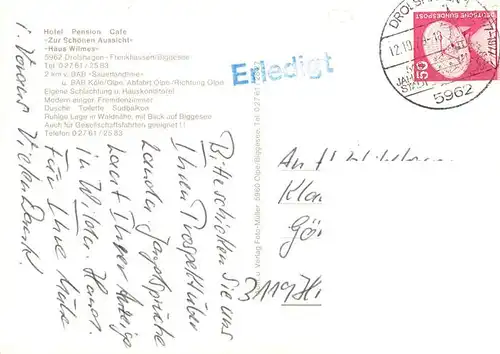 Hotel Pension Cafe
»Zur Schönen Aussicht«
»Haus Wilmes«
5962 Drolshagen - Frenkhausen/Biggesee
Tel 0 27 61 / 25 83
2 km v. BAB »Sauerlandlinie«
u. BAB Köln/Olpe, Abfahrt Olpe/Richtung Olpe
Eigene Schlachtung u. Hauskonditorei
Modern einger. Fremdenzimmer
Dusche Toilette Südbalkon
Ruhige Lage in Waldnähe, mit Blick auf Biggesee
Auch für Gesellschaftsfahrten geeignet !!
Telefon 0 27 61 / 25 83
Erledigt
DROLSHAGEN
12.10.79-18
5962
DEUTSCHE BUNDESPOST
50
u. Verlag Foto-Müller, 5960 Olpe/Biggesee, Tel. 0 27 61
Bitte schicken Sie uns
Ihren Prospekt über
Lander
laut Ihrer Anzeige
in Wild u. Hund.
Für Ihre Mühe
i. Voraus Vielen Dank!
An
Gör
3119